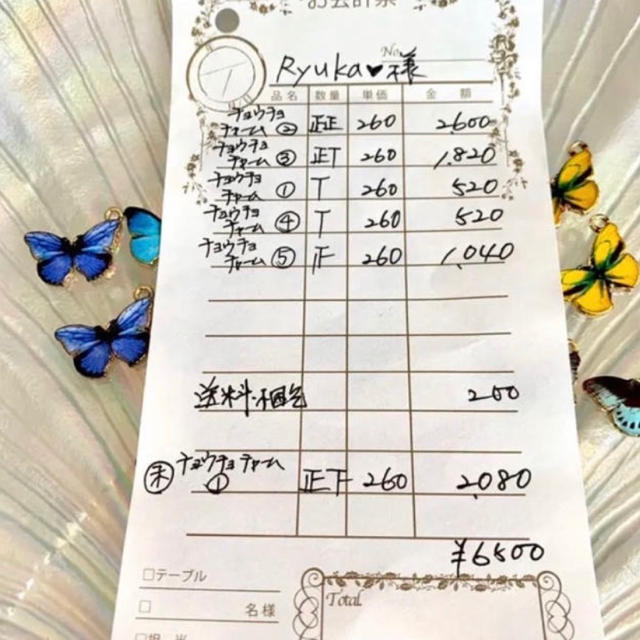 お会計票
No.
Ryuka♥様
品名 数量 単価 金額
チョウチョ
チャーム② 正正 260 2600
チョウチョ
チャーム③ 正T 260 1,820
チョウチョ
チャーム① T 260 520
チョウチョ
チャーム④ T 260 520
チョウチョ
チャーム⑤ 正 260 1,040
送料・梱包 250
チョウチョチャーム
① 正下 260 2,080
¥6800
□テーブル
□ 名様
□担当
Total